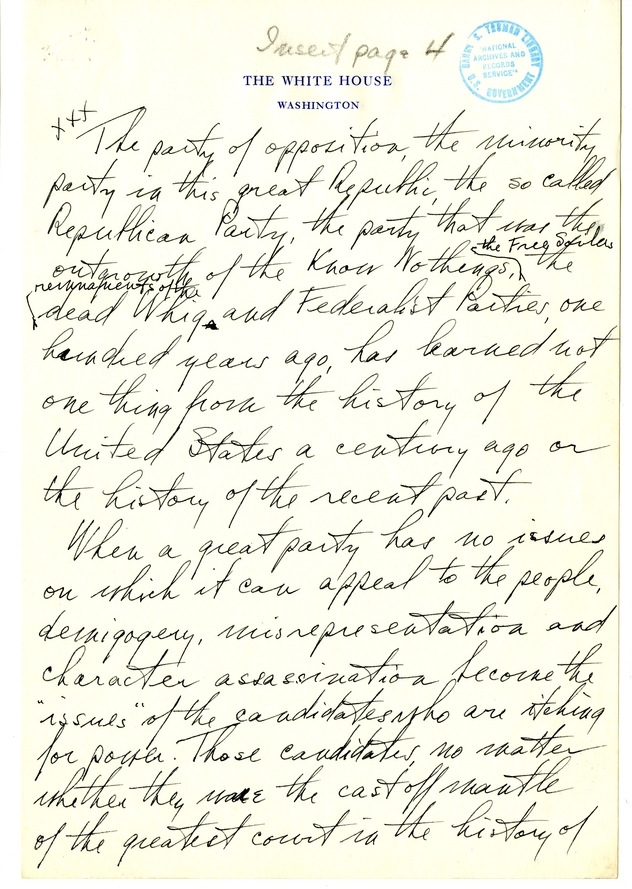 Insert page 4
HARRY S. TRUMAN LIBRARY
"NATIONAL
ARCHIVES AND
RECORDS
SERVICE"
U.S. GOVERNMENT
THE WHITE HOUSE
WASHINGTON
xxx The party of opposition, the minority
party in this great Republic, the so called
Republican Party, the party that was the
outgrowth of the Know Nothings, the Free Soilers the
remnaments of the
dead Whig and Federalist Parties, one
hundred years ago, has learned not
one thing from the history of the
United States a century ago or
the history of the recent past.
When a great party has no issues
on which it can appeal to the people,
demigogery, misrepresentation and
character assassination become the
"issues" of the candidates who are itching
for power. Those candidates, no matter
whether they the cast off mantle
of the greatest court in the history of